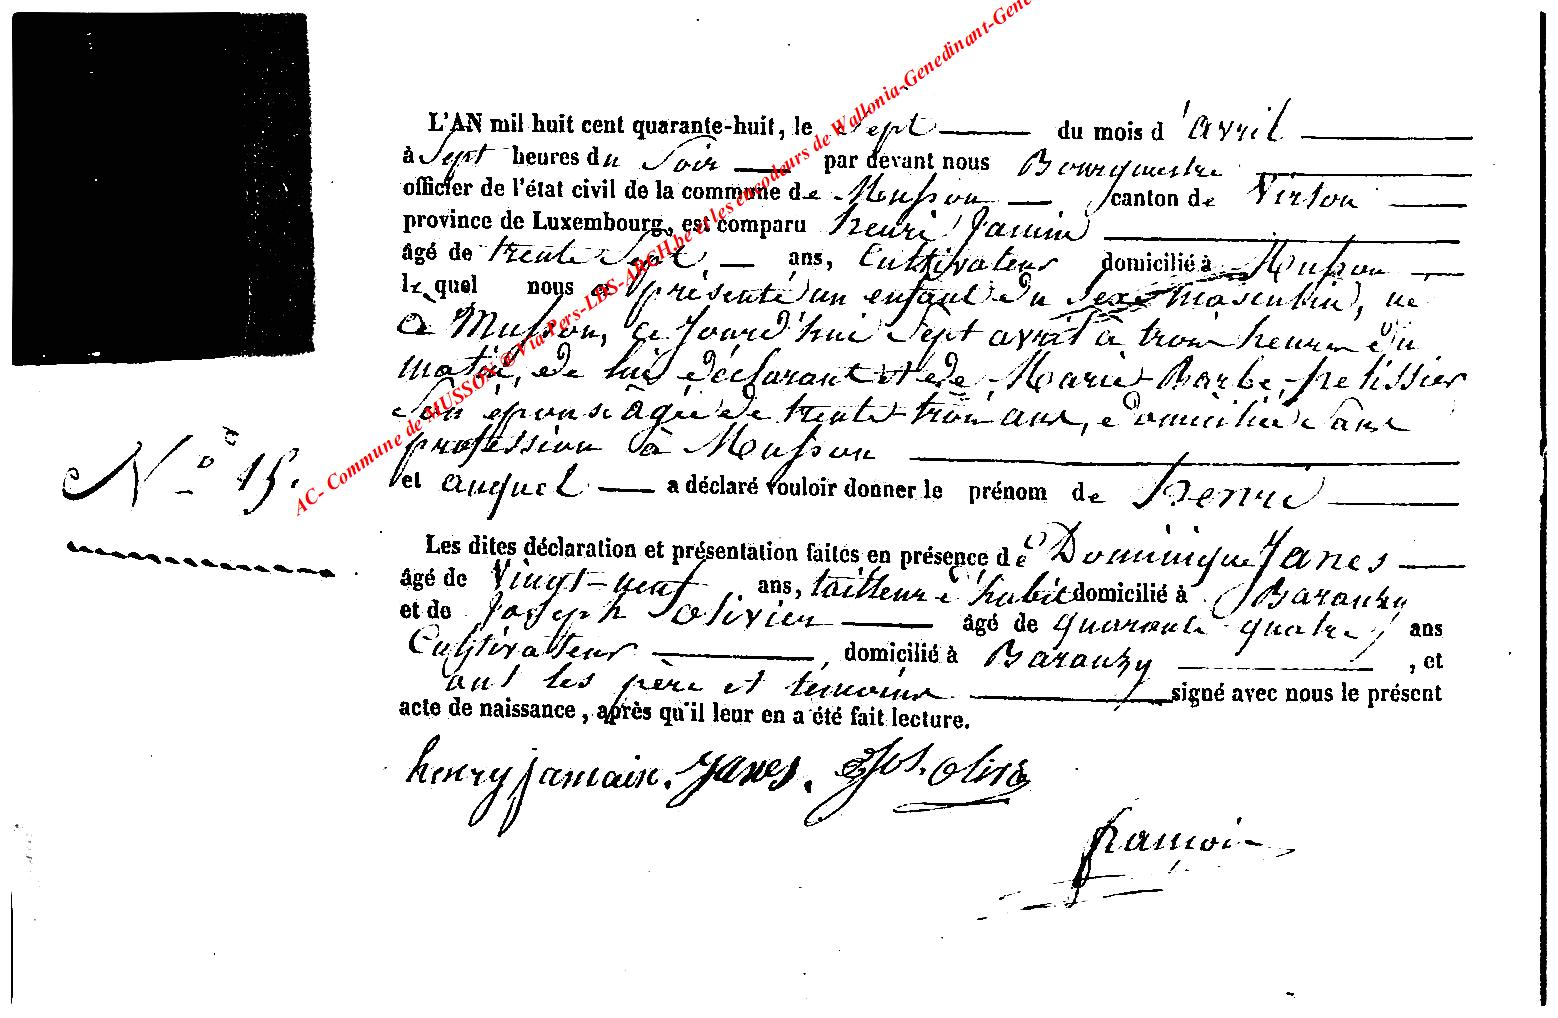 L'AN mil huit cent quarante-huit, le Sept du mois d'avril
à Sept heures du Soir par devant nous Bourgmestre
officier de l'état civil de la commune de Musson canton de Virton
province de Luxembourg, est comparu henri Jamin
âgé de trente Sept ans, Cultivateur domicilié à Musson
lequel nous a présenté un enfant du Sexe masculin, né
à Musson, ce Jourd'hui Sept avril à trois heures du
matin, de lui déclarant et de Marie Barbe pelissier
Son épouse âgée de trente trois ans, domiciliée Sans
profession à Musson
N° 15.
et auquel a déclaré vouloir donner le prénom de henri
Les dites déclaration et présentation faites en présence de Dominique Janes
âgé de Vingt-neuf ans, tailleur d'habit domicilié à Baranzy
et de Joseph Olivier âgé de quarante quatre ans
Cultivateur, domicilié à Baranzy, et
ont les père et témoins signé avec nous le présent
acte de naissance, après qu'il leur en a été fait lecture.
henry jamain. Janes. Jos. Olivier
françois
AC- Commune de MUSSON @ Via Pers-LDS-ARCH.be et les encodeurs de Wallonia-Genedinant-Gene